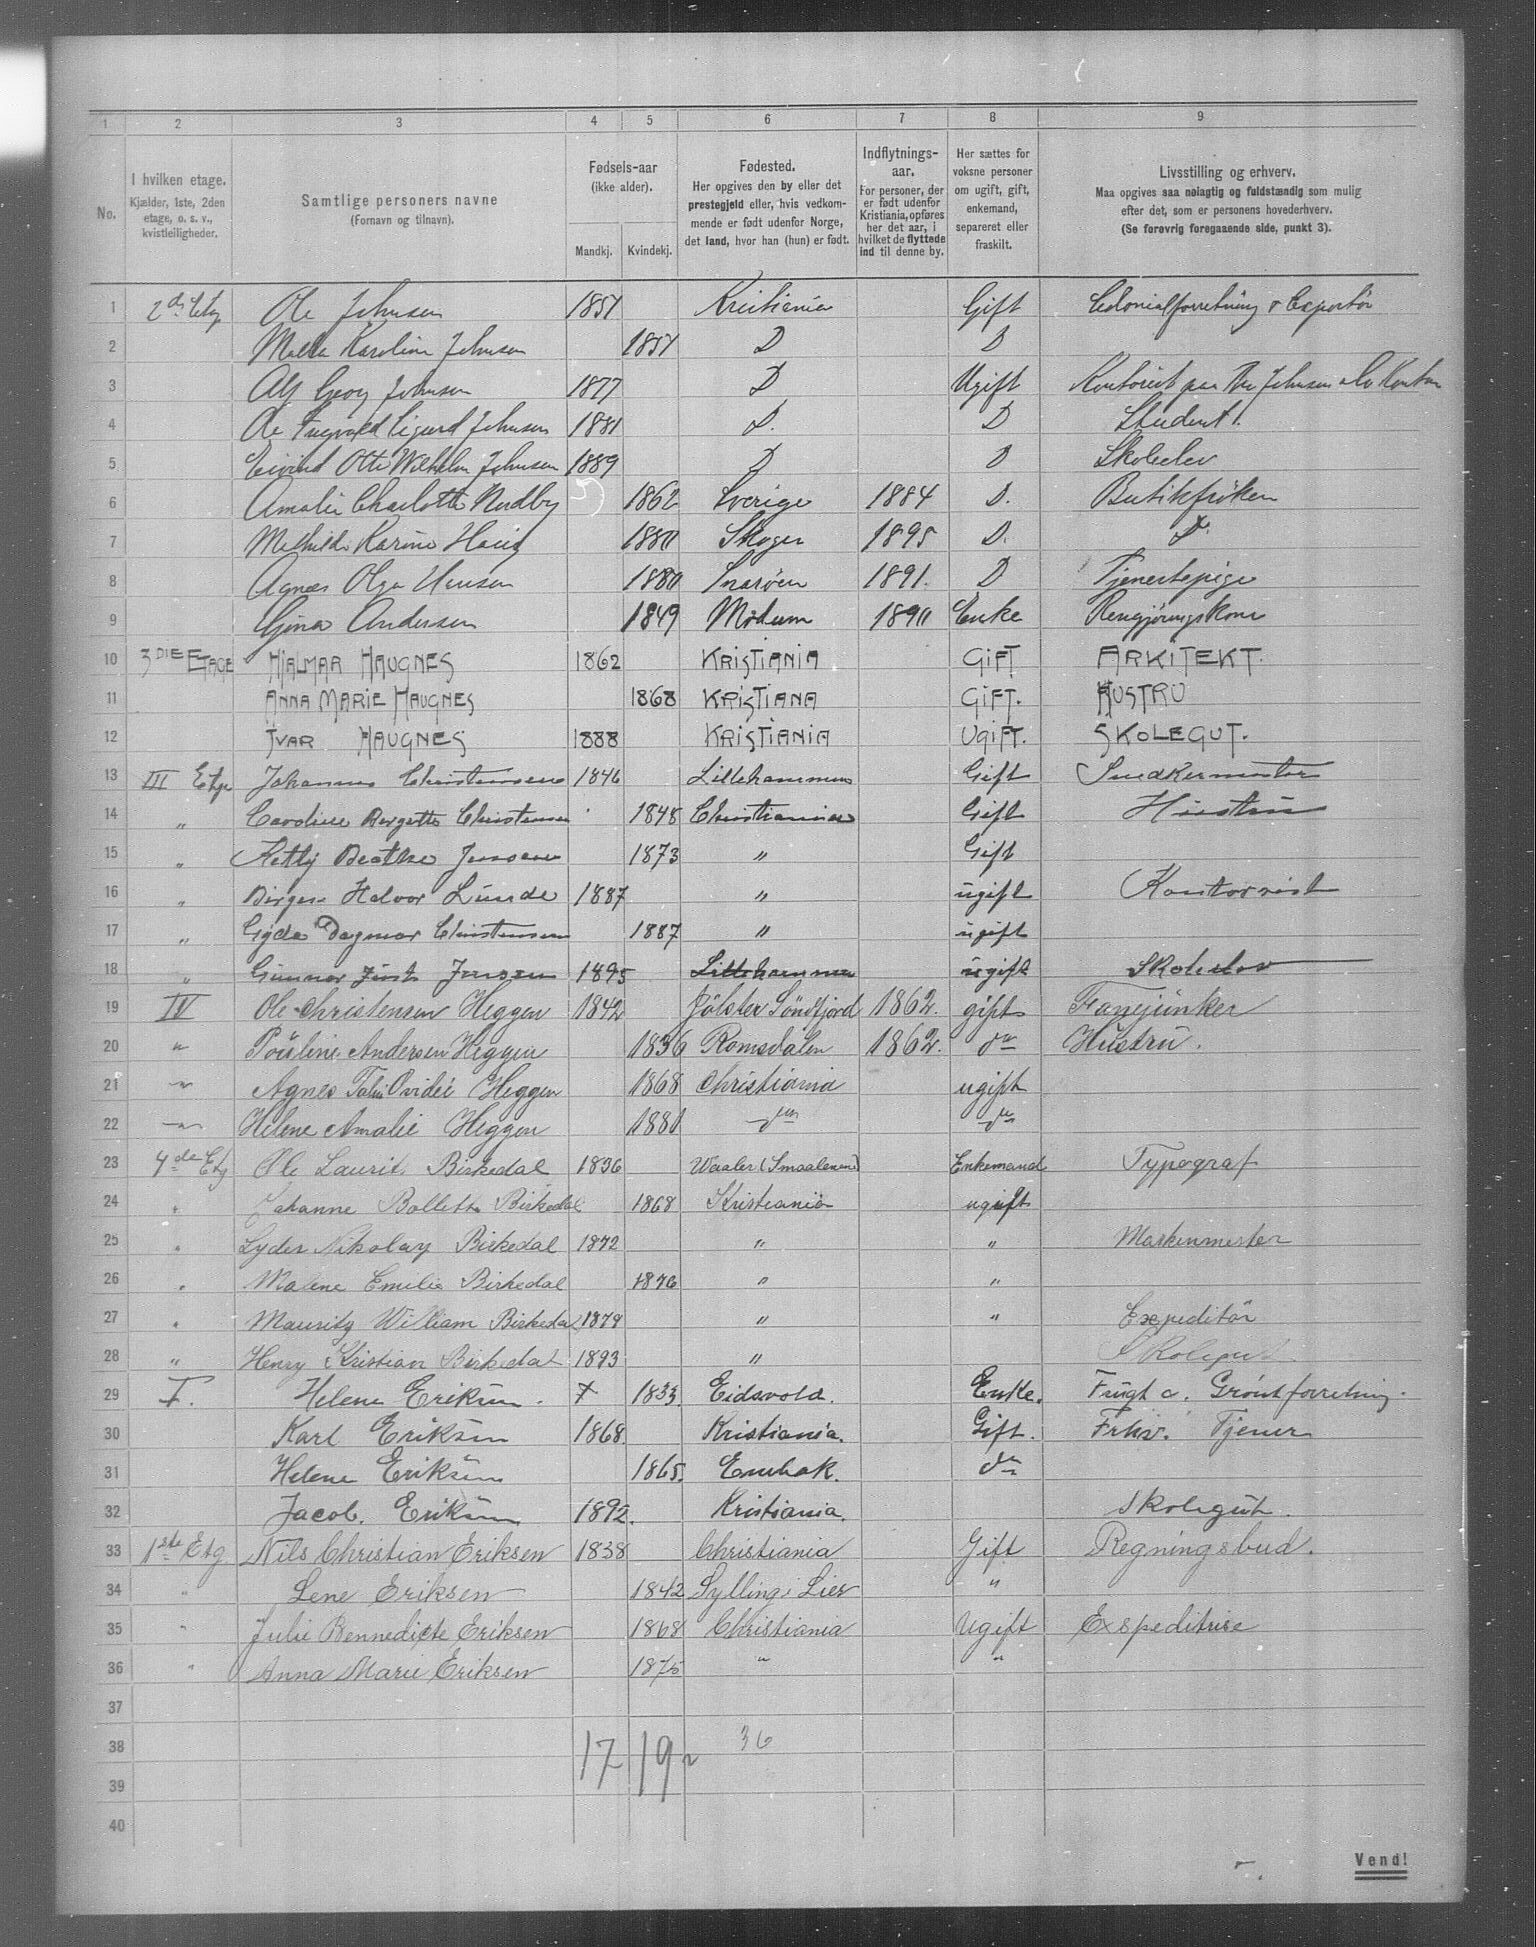 1 2 3 4 5 6 7 8 9
No.
I hvilken etage.
Kjælder, 1ste, 2den
etage, o. s. v.,
kvistleiligheder.
Samtlige personers navne
(Fornavn og tilnavn).
Fødsels-aar
(ikke alder).
Mandkj. Kvindekj.
Fødested.
Her opgives den by eller det
prestegjeld eller, hvis vedkom-
mende er født udenfor Norge,
det land, hvor han (hun) er født.
Indflytnings-
aar.
For personer, der
er født udenfor
Kristiania, opføres
her det aar, i
hvilket de flyttede
ind til denne by.
Her sættes for
voksne personer
om ugift, gift,
enkemand,
separeret eller
fraskilt.
Livsstilling og erhverv.
Maa opgives saa nøiagtig og fuldstændig som mulig
efter det, som er personens hovederhverv.
(Se forøvrig foregaaende side, punkt 3).
1 2den Etg Ole Johnsen 1851 Kristiania Gift Colonialforretning & Exportør
2 Karoline Johnsen 1857 D D
3 Alf Georg Johnsen 1877 D Ugift Kontorist paa Johnsen & Co Kontor
4 Ole Ingvald Sigurd Johnsen 1881 D. D Student.
5 Eivind Otto Wilhelm Johnsen 1889 D D Skoleelev
6 Amalie Charlotte Nordby 1862 Sverige 1884 D. Butikfrøken
7 Mathilde Karine Haug 1880 Skoger 1895 D. D.
8 Agnes Olga Hansen 1880 Snarøen 1891. D Tjenestepige
9 Gina Andersen 1849 Modum 1890 Enke Rengjøringskone
10 3DIE ETAGE HJALMAR HAUGNES 1862 KRISTIANIA GIFT ARKITEKT.
11 ANNA MARIE HAUGNES 1868 KRISTIANA GIFT. HUSTRU
12 IVAR HAUGNES 1888 KRISTIANIA UGIFT. SKOLEGUT.
13 III Etge Johannes Christensen 1846 Lillehammer Gift Snedkermester
14 " Caroline Bergette Christensen 1848 Christiania Gift Hustru
15 " Beathe Jensen 1873 " Gift
16 " Birger Halvor Lunde 1887 " ugift Kontorist
17 " Gyda Dagmar Christensen 1887 " ugift
18 " Gunnar Just Jensen 1895 Lillehammer ugift Skoleelev
19 IV Ole Christensen Heggen 1842 Jølster Søndfjord 1862. gift Fanejunker
20 " Andersen Heggen 1836 Romsdalen 1862. do Hustru.
21 " Agnes Ovidie Heggen 1868 Christiania ugift
22 " Helene Amalie Heggen 1881 do do
23 4de Etg Ole Laurits Birkedal 1836 Waaler (Smaalenene) Enkemand Typograf
24 " Johanne Bollette Birkedal 1868 Kristiania ugift
25 " Lyder Nikolay Birkedal 1872 " " Maskinmester
26 " Malene Emilie Birkedal 1876 " "
27 " Mauritz William Birkedal 1879 " " Expeditør
28 " Henry Kristian Birkedal 1893 " Skolegut
29 I. Helene Eriksen. + 1833. Eidsvold. Enke. Frugt o. Grøntforretning.
30 Karl Eriksen 1868. Kristiania. Gift. Frhv. Tjener
31 Helene Eriksen 1865. Enebak. do
32 Jacob. Eriksen 1892. Kristiania. Skolegut.
33 1ste Etg Nils Christian Eriksen 1838 Christiania Gift Regningsbud.
34 " Lene Eriksen 1842 Sylling i Lier "
35 " Julie Bennedicte Eriksen 1868 Christiania Ugift Expeditrise
36 " Anna Marie Eriksen 1875 " "
37
38 17 19 36
39
40
Vend!